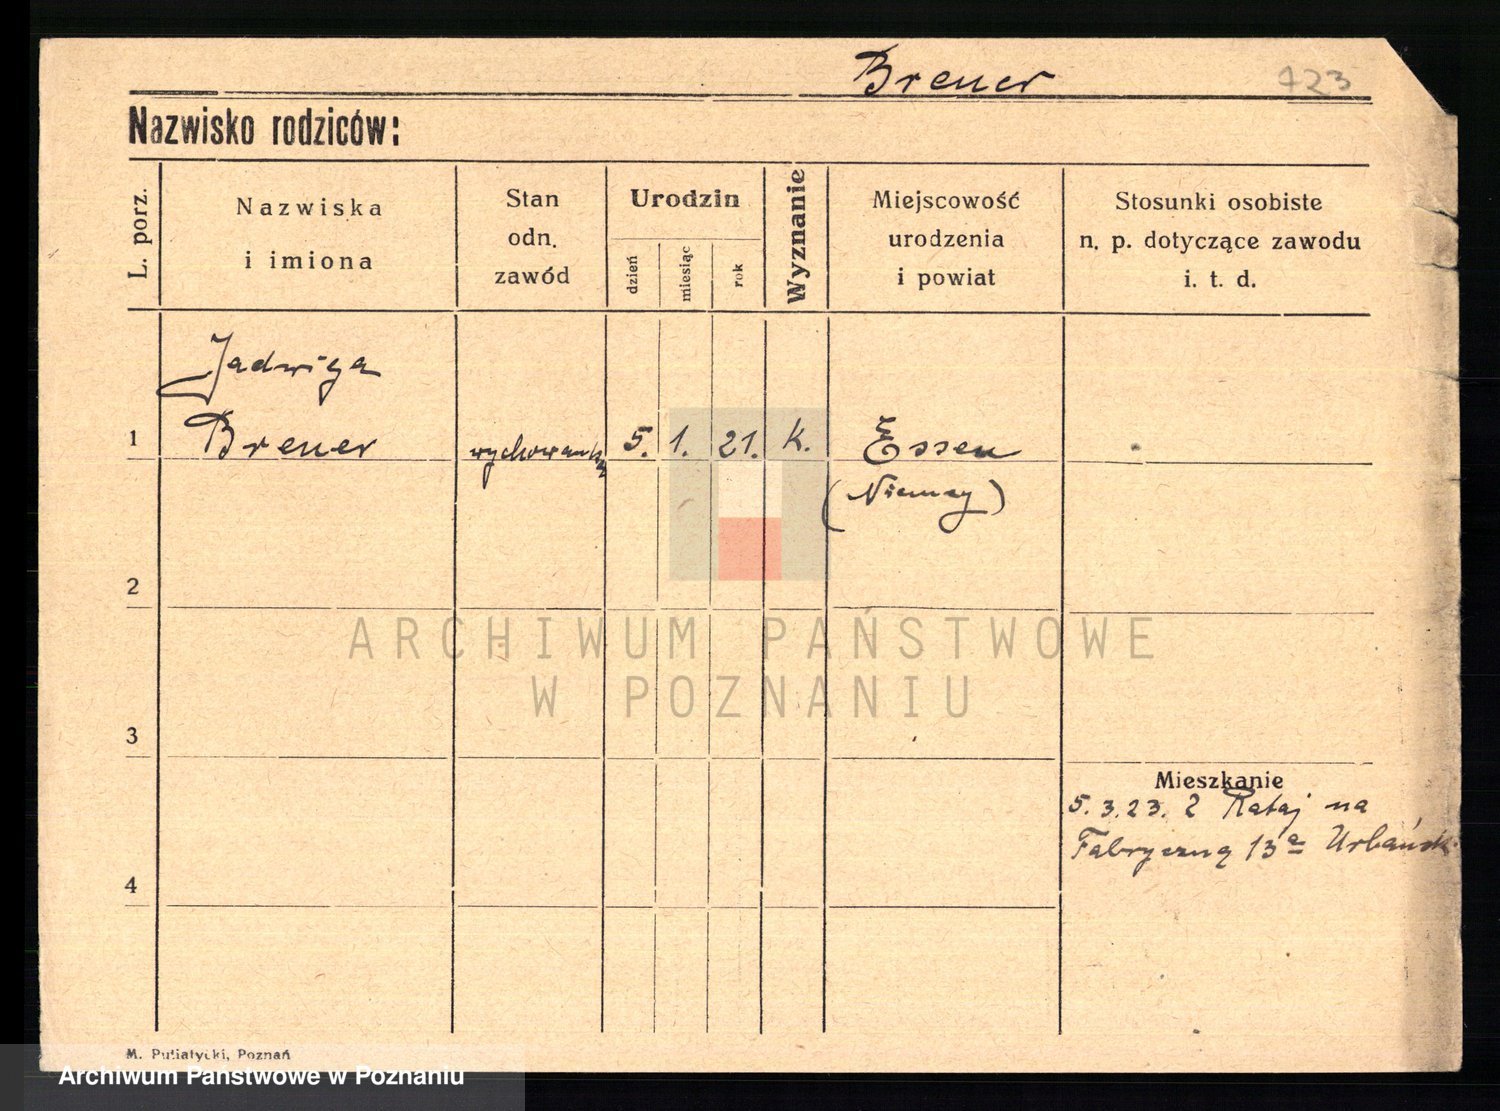 Brener
723
Nazwisko rodziców:
L. porz.
Nazwiska
i imiona
Stan
odn.
zawód
Urodzin
dzień
miesiąc
rok
Wyznanie
Miejscowość
urodzenia
i powiat
Stosunki osobiste
n. p. dotyczące zawodu
i. t. d.
Jadwiga
1 Brener wychowanka 5. 1. 21. K. Essen
(Niemcy)
2
ARCHIWUM PAŃSTWOWE
W POZNANIU
3
Mieszkanie
5.3.23. Z Rataj na
Fabryczną 13a Urbańska
4
M. Putiatycki, Poznań
Archiwum Państwowe w Poznaniu